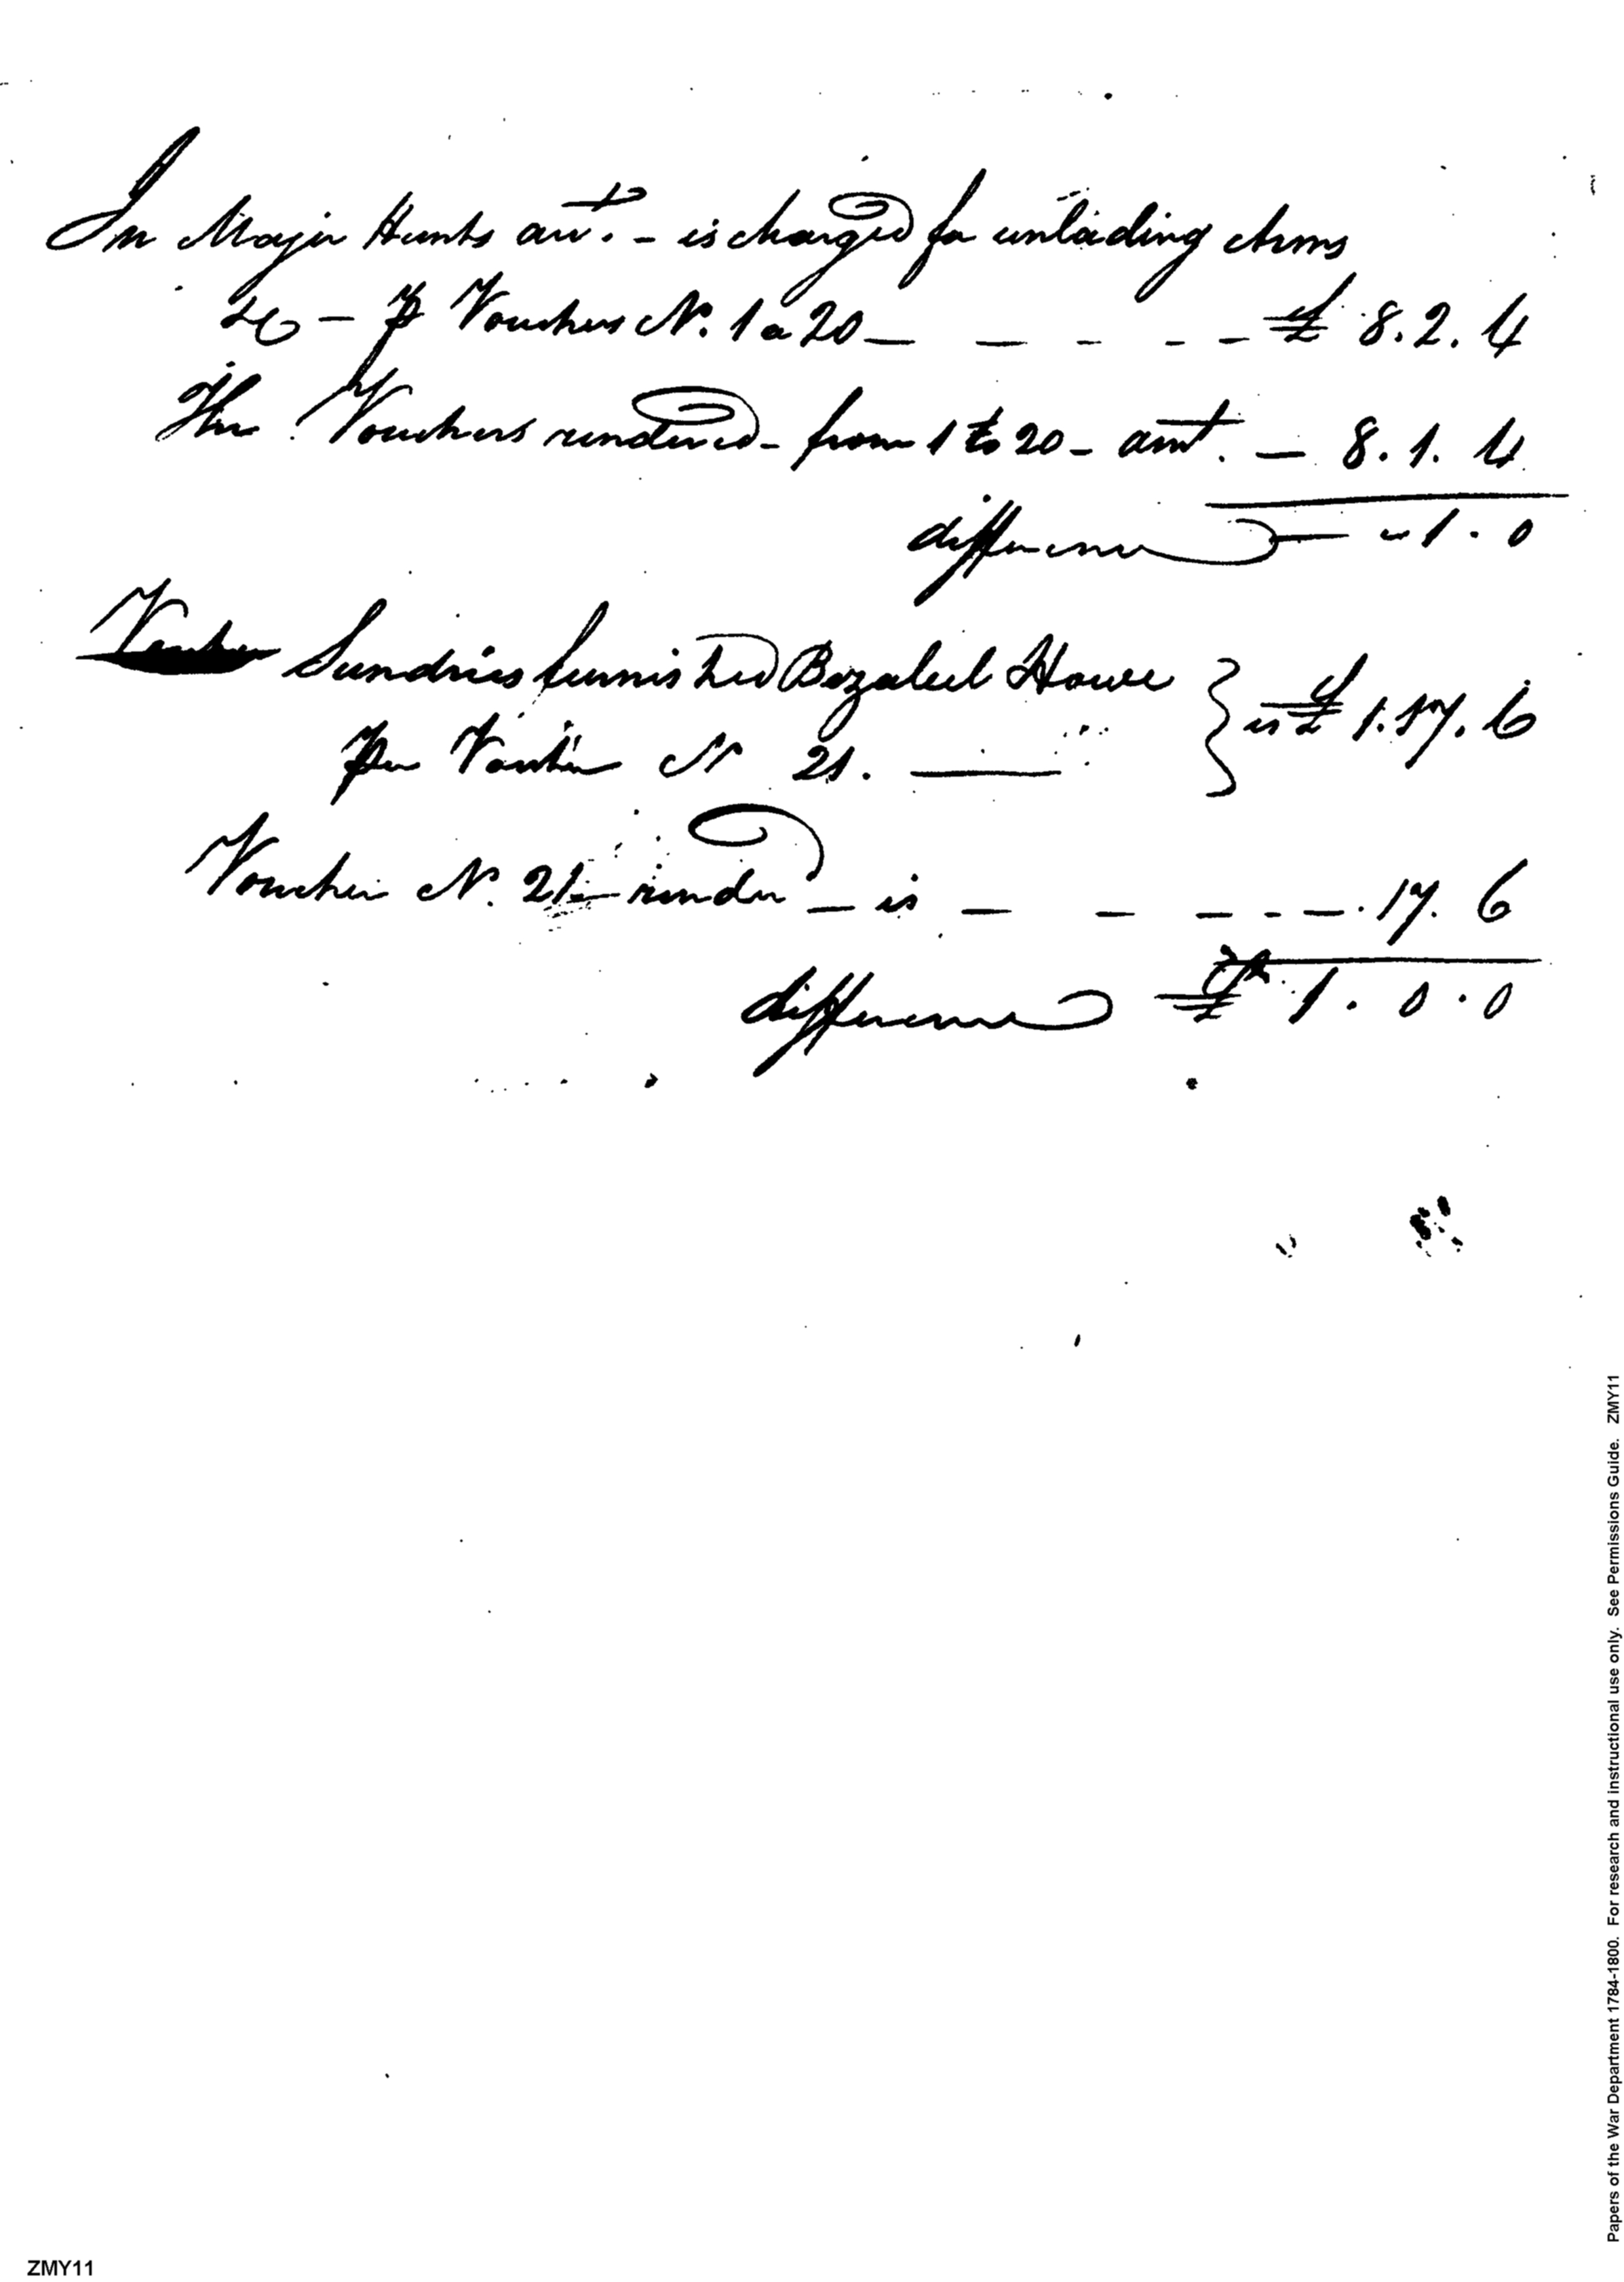 In Major Hunts acct. - is charged for unlading Arms
&c - ⅌ Vouchers No. 1 a 20 - - - - - - £ 8.2.4
The Vouchers rendered - from 1 to 20 - amt. - 8.1.4
difference - " 1.0
Voucher Sundries furnished Bezaleel Howe
per Voucher No 21. - } is £ 1.17.6
Voucher No. 21 - renderd - is - - - - - .17.6
difference £ 1.0.0
Papers of the War Department 1784-1800. For research and instructional use only. See Permissions Guide. ZMY11
ZMY11